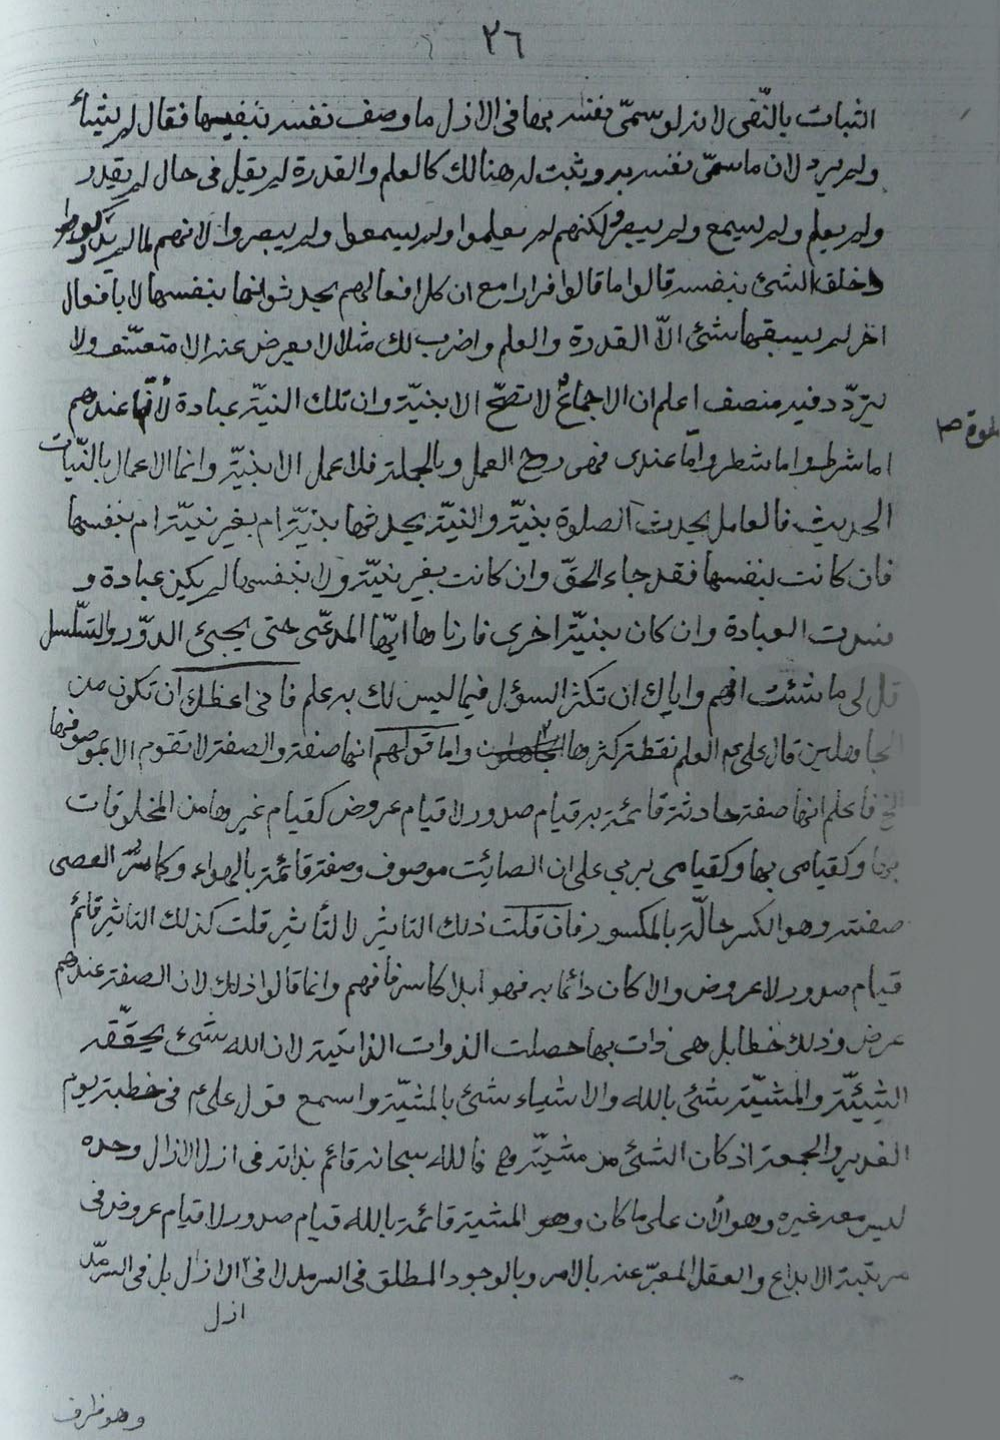 ٢٦
الثبات بالنّفى لانه لو سمّى نفسه بها فى الازل ما وصف نفسه بنفيها فقال لم يشأ
ولم يرد لان ما سمّى نفسه به وثبت له هنالك كالعلم والقدرة لم يقل فى حال لم يقدر
ولم يعلم ولم يسمع ولم يبصر ولكنهم لم يعلموا ولم يسمعوا ولم يبصروا لانهم لما لم
خلق الشئ بنفسه قالوا ما قالوا فرارا مع ان كل افعالهم يحدثونها بنفسها لا بافعال
اخر لم يسبقها شئ الّا القدرة والعلم واضرب لك مثلا لا يعرض عنه الا متعنّت ولا
يتردّد فيه منصف اعلم ان الاجماع لا تصحّ الا بنيّة وان تلك النيّة عبادة لأنّها عندهم
صلوة ص
اما شرط واما شطر وامّا عندى فهى روح العمل وبالجملة فلا عمل الا بنيّة وانما الاعمال بالنيّات
الحديث فالعامل يحدث الصلوة بنيّة والنيّة يحدثها بنيّة ام بغير نيّة ام بنفسها
فان كانت بنفسها فقد جاء الحقّ وان كانت بغير نيّة ولا بنفسها لم يكن عبادة و
فسدت العبادة وان كان بنيّة اخرى فارناها ايّها المدعّى حتى يجئ الدّور والتسّلسل
قل لى ما شئت افهم واياك ان تكثر السؤل فيما ليس لك به علم فانى اعظك ان تكون من
الجاهلين قال على ع م العلم نقطة كثرها الجاهلون واما قولهم انها صفة والصفة لا تقوم الا بموصوفها
الخ فاعلم انها صفة حادثة قائمة به قيام صدور لا قيام عروض كقيام غيرها من المخلوقات
بها وكقيامى بها وكقيامى بربى على ان الصائت موصوف وصفته قائمة بالهواء وكاسر العصى
صفته وهو الكسر حالّة بالمكسور فان قلت ذلك التاثير لا لتأثير قلت كذلك التاثير قائم
قيام صدور لا عروض والا كان دائما به فهو ابدا كاسر فافهم وانما قالوا ذلك لان الصفة عندهم
عرض وذلك خطا بل هى ذات بها حصلت الذوات الذاتية لان الله شئ بحقيقة
الشيئيّة والمشيّة شئ بالله والاشياء شئ بالمشيّة واسمع قول على ع م فى خطبة يوم
الغدير والجمعة اذ كان الشئ من مشيّته فالله سبحانه قائم بذاته فى ازل الازال وحده
ليس معه غيره وهو الأن على ما كان وهو المشية قائمة بالله قيام صدور لا قيام عروض فى
مرتبة الابداع والعقل المعبّر عنه بالامر وبالوجود المطلق فى السرمد لا فى الازال بل فى السرمد
ازل
وهو ظرف